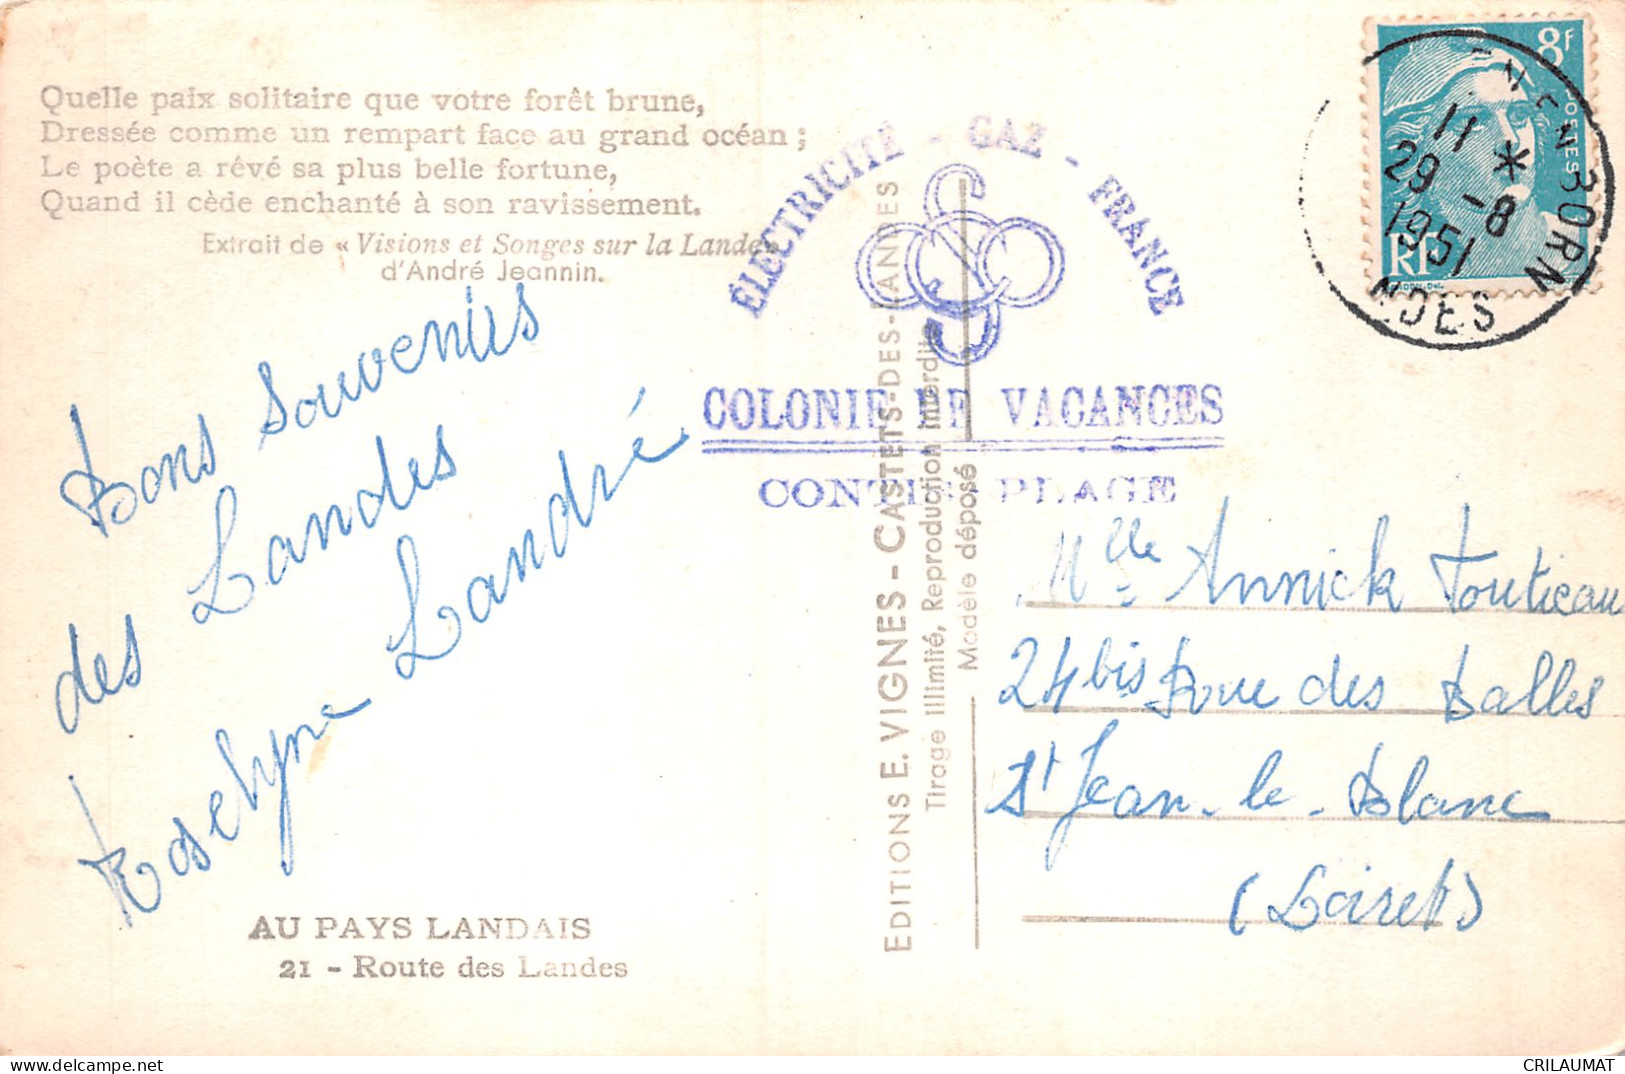 Quelle paix solitaire que votre forêt brune,
Dressée comme un rempart face au grand océan ;
Le poète a rêvé sa plus belle fortune,
Quand il cède enchanté à son ravissement.
Extrait de « Visions et Songes sur la Lande »
d'André Jeannin.
Bons Souvenirs
des Landes
Roselyne Landré
AU PAYS LANDAIS
21 - Route des Landes
ÉLECTRICITÉ - GAZ - FRANCE
COLONIE DE VACANCES
CONTIS PLAGE
EDITIONS E. VIGNES - CASTETS-DES-LANDES
Tirage illimité, Reproduction interdite
Modèle déposé
8F
POSTES
RF
11 *
29 -8
1951
BORN
NDES
Mlle Annick Toutieau
24 bis Rue des Salles
St Jean-le-Blanc
(Loiret)
CRILAUMAT